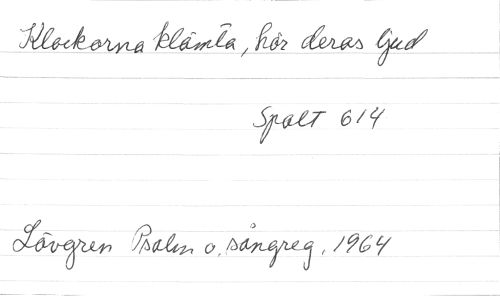 Klockorna klämta, hör deras ljud
Spalt 614
Lövgren Psalm o. sångreg. 1964